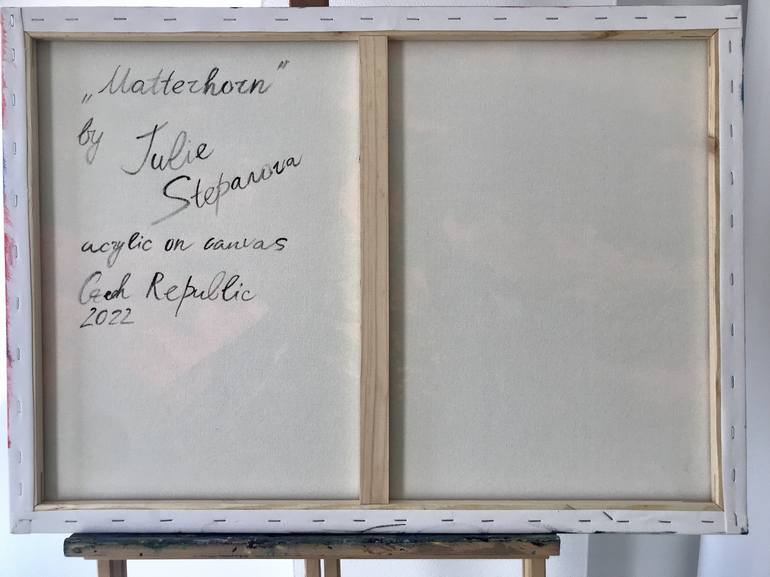 „Matterhorn"
by Julie
Stepanova
acrylic on canvas
Czech Republic
2022